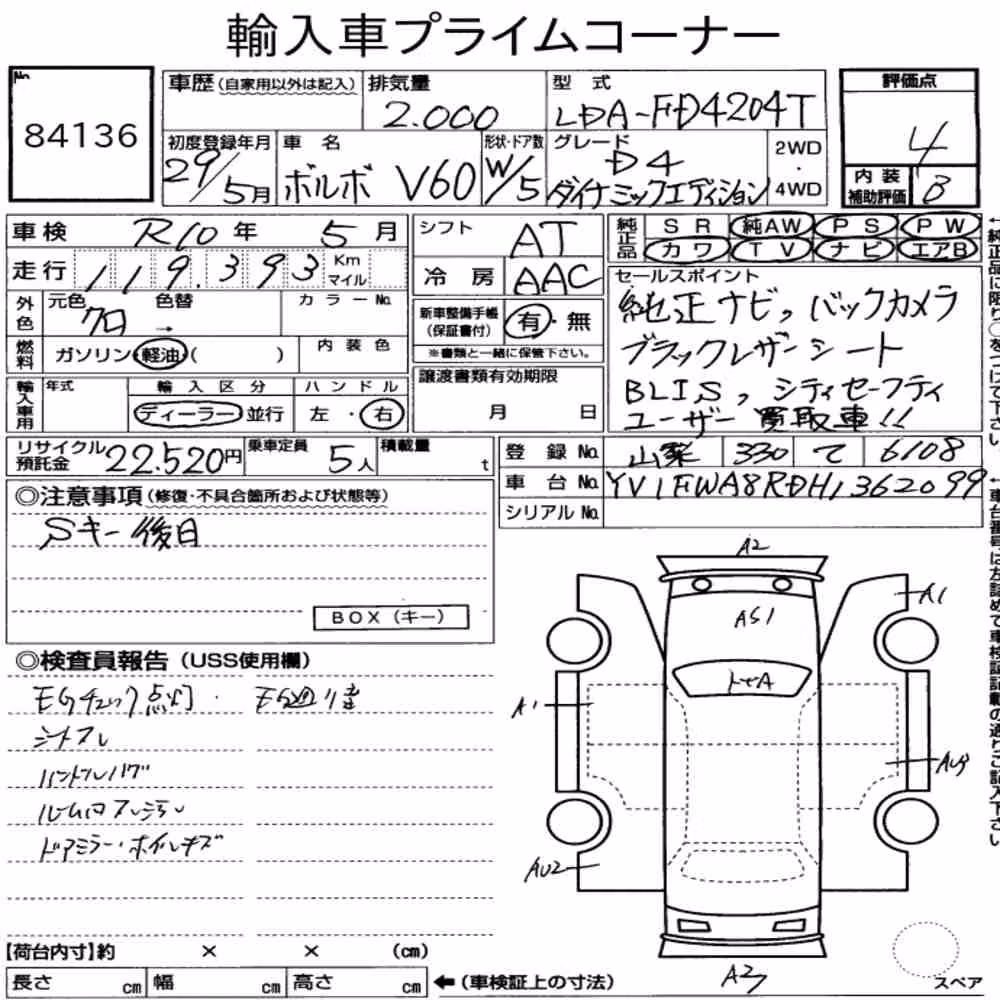 輸入車プライムコーナー
No. 84136
車歴(自家用以外は記入) 排気量 2.000 型式 LDA-FD4204T
評価点 4
内装補助評価 B
初度登録年月 29/5月 車名 ボルボ V60 形状・ドア数 W/5 グレード D4 ダイナミックエディション 2WD 4WD
車検 R10年 5月
走行 119.393 Km マイル
シフト AT
冷房 AAC
純正品 SR 純AW PS PW
カワ TV ナビ エアB
セールスポイント
純正ナビ, バックカメラ
ブラックレザーシート
BLIS, シティセーフティ
ユーザー買取車!!
外色 元色 クロ 色替 → カラーNo.
燃料 ガソリン・軽油( ) 内装色
新車整備手帳(保証書付) 有・無
※書類と一緒に保管下さい。
輸入車用 年式 輸入区分 ディーラー・並行 ハンドル 左・右
譲渡書類有効期限 月 日
リサイクル預託金 22.520円 乗車定員 5人 積載量 t
登録No. 山梨 330 て 6108
車台No. YV1FWA8RDH1362099
シリアルNo.
◎注意事項(修復・不具合箇所および状態等)
Sキー後日
BOX(キー)
◎検査員報告(USS使用欄)
EGチェック点灯・
シートスレ
ハンドルハゲ
ドアミラー・ホイルキズ
A2
A1
AS1
A1
AU2
A2
スペア
【荷台内寸】約 × × (cm)
長さ cm 幅 cm 高さ cm ←(車検証上の寸法)
←純正品に限り○をつけて下さい。
←車台番号は左詰めで車検証記載の通りご記入下さい。